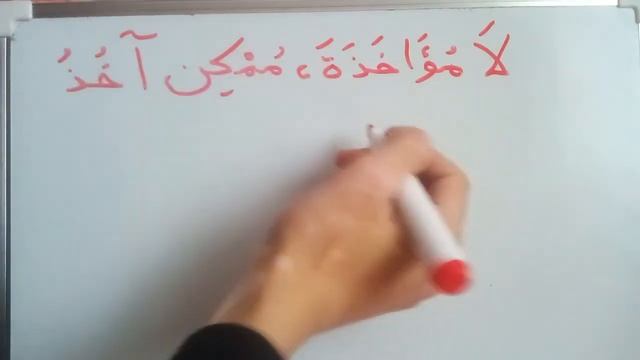 لاَ مُؤَاخَذَةَ، مُمْكِن آخُذُ